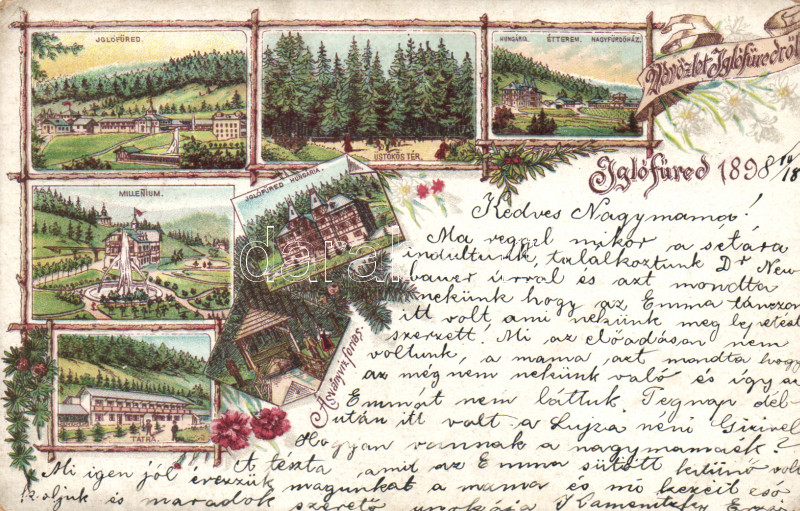 IGLÓFÜRED.
ÜSTÖKÖS TÉR.
HUNGÁRIA. ÉTTEREM. NAGYFÜRDŐHÁZ.
Üdvözlet Iglófüredről
MILLENIUM.
IGLÓFÜRED HUNGÁRIA.
Ásványvíz forrás.
TÁTRA.
darabanth
Iglófüred 1898 10/18
Kedves Nagymama!
Ma reggel mikor a sétára
indultunk, találkoztunk Dr New
bauer úrral és azt mondta
nekünk hogy az Emma
itt volt, ami nekünk meg
szerzett. Mi az előadáson nem
voltunk, a mama azt mondta hogy
az még nem nekünk való és így az
Emmát nem láttuk. Tegnap dél-
után itt volt a Lujza néni
Hogyan vannak a nagymamáék?
A tészta amit az Emma sütött kitünő volt
Mi igen jól érezzük magunkat a mama és mi kezeit
csókoljuk és maradok szerető unokája